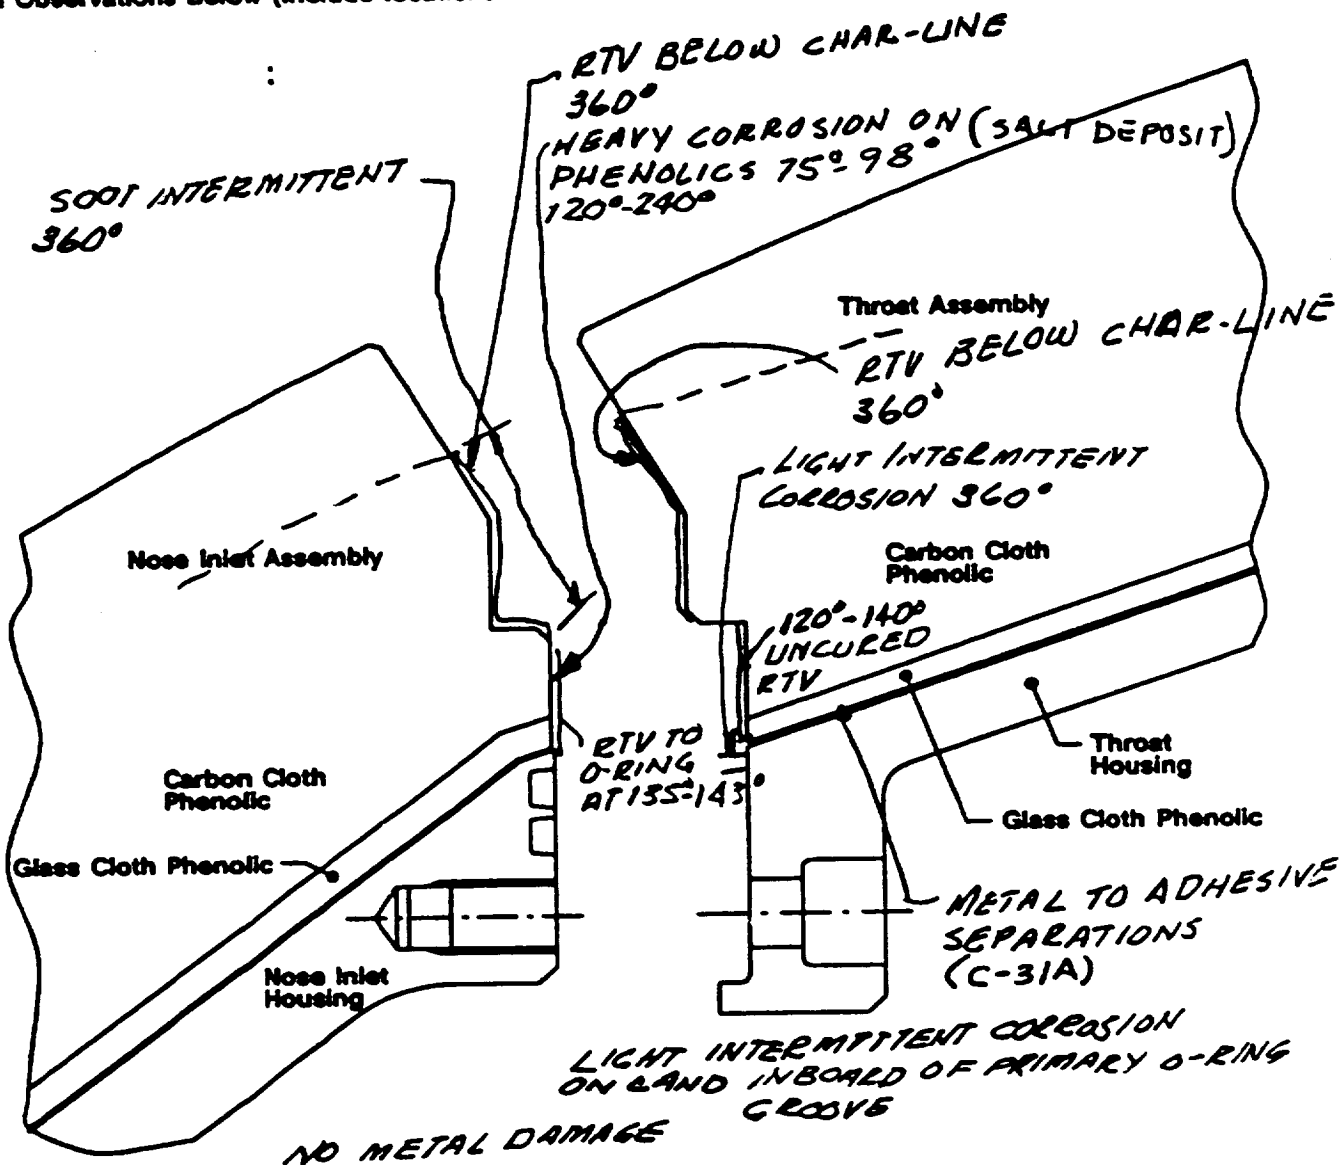 Observations Below (Include
RTV BELOW CHAR-LINE
360°
HEAVY CORROSION ON (SALT DEPOSIT)
PHENOLICS 75°-98°
120°-240°
SOOT INTERMITTENT
360°
Throat Assembly
RTV BELOW CHAR-LINE
360°
LIGHT INTERMITTENT
CORROSION 360°
Nose Inlet Assembly
Carbon Cloth
Phenolic
120°-140°
UNCURED
RTV
RTV TO
O-RING
AT 135°-143°
Throat
Housing
Carbon Cloth
Phenolic
Glass Cloth Phenolic
Glass Cloth Phenolic
METAL TO ADHESIVE
SEPARATIONS
(C-31A)
Nose Inlet
Housing
LIGHT INTERMITTENT CORROSION
ON LAND INBOARD OF PRIMARY O-RING
GROOVE
NO METAL DAMAGE